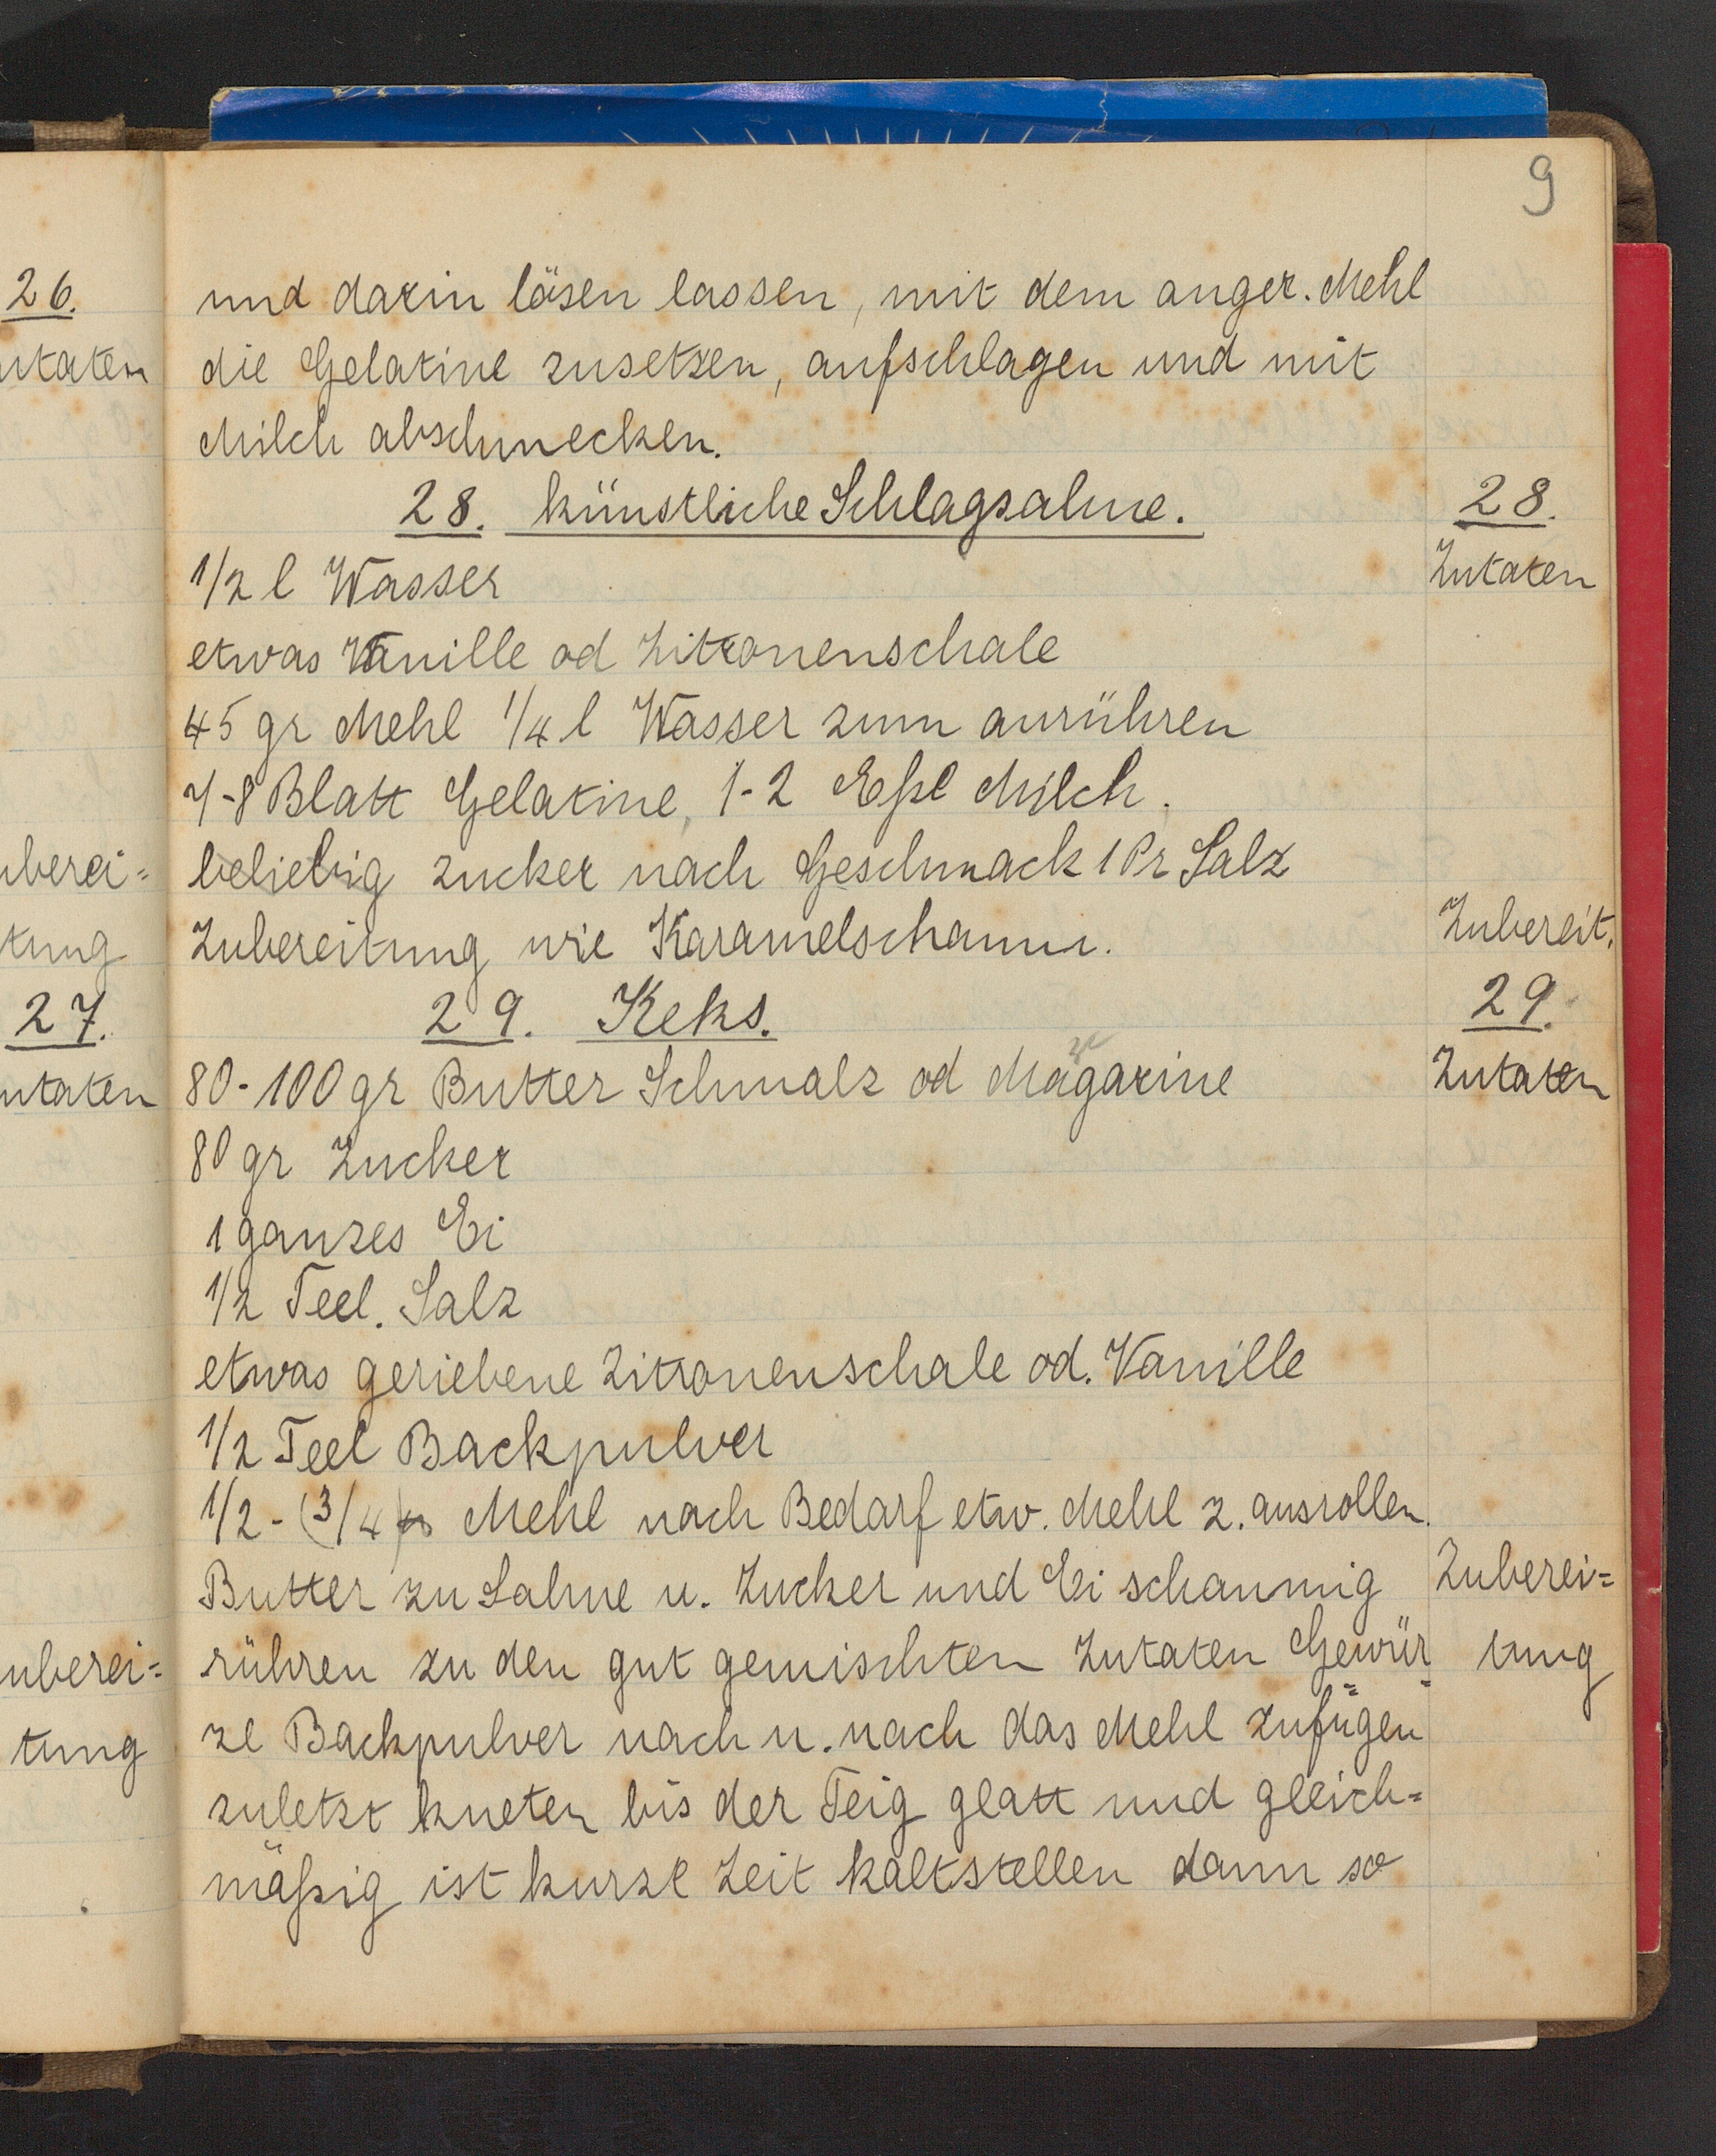 9
26.
utaten
uberei=
tung
27.
utaten
uberei=
tung
und darin lösen lassen, mit dem anger. Mehl
die Gelatine zusetzen, aufschlagen und mit
Milch abschmecken.
28. künstliche Schlagsahne.
28.
1/2 l Wasser
Zutaten
etwas Vanille od Zitronenschale
45 gr Mehl 1/4 l Wasser zum anrühren
7-8 Blatt Gelatine, 1-2 Eßl Milch.
beliebig zucker nach Geschmack 1 Pr Salz
Zubereitung wie Karamelschaum.
Zubereit.
29. Keks.
29.
80-100 gr Butter Schmalz od Magarine
Zutaten
80 gr Zucker
1 ganzes Ei
1/2 Teel. Salz
etwas geriebene Zitronenschale od. Vanille
1/2 Teel Backpulver
1/2 - (3/4) Mehl nach Bedarf etw. Mehl z. ausrollen.
Butter zu Sahne u. Zucker und Ei schaumig
Zuberei=
rühren zu den gut gemischten Zutaten Gewür=
tung
ze Backpulver nach u. nach das Mehl zufügen
zuletzt kneten bis der Teig glatt und gleich=
mäßig ist kurze Zeit kaltstellen dann so